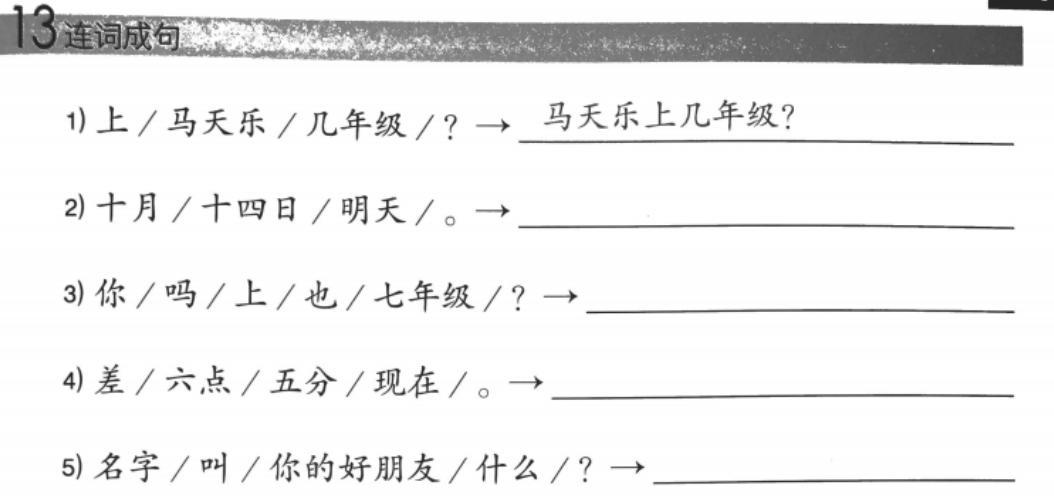 13 连词成句
1) 上 / 马天乐 / 几年级 / ? → 马天乐上几年级?
2) 十月 / 十四日 / 明天 / 。→
3) 你 / 吗 / 上 / 也 / 七年级 / ? →
4) 差 / 六点 / 五分 / 现在 / 。→
5) 名字 / 叫 / 你的好朋友 / 什么 / ? →